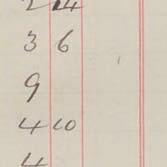 2 14
3 6
9
4 10
4